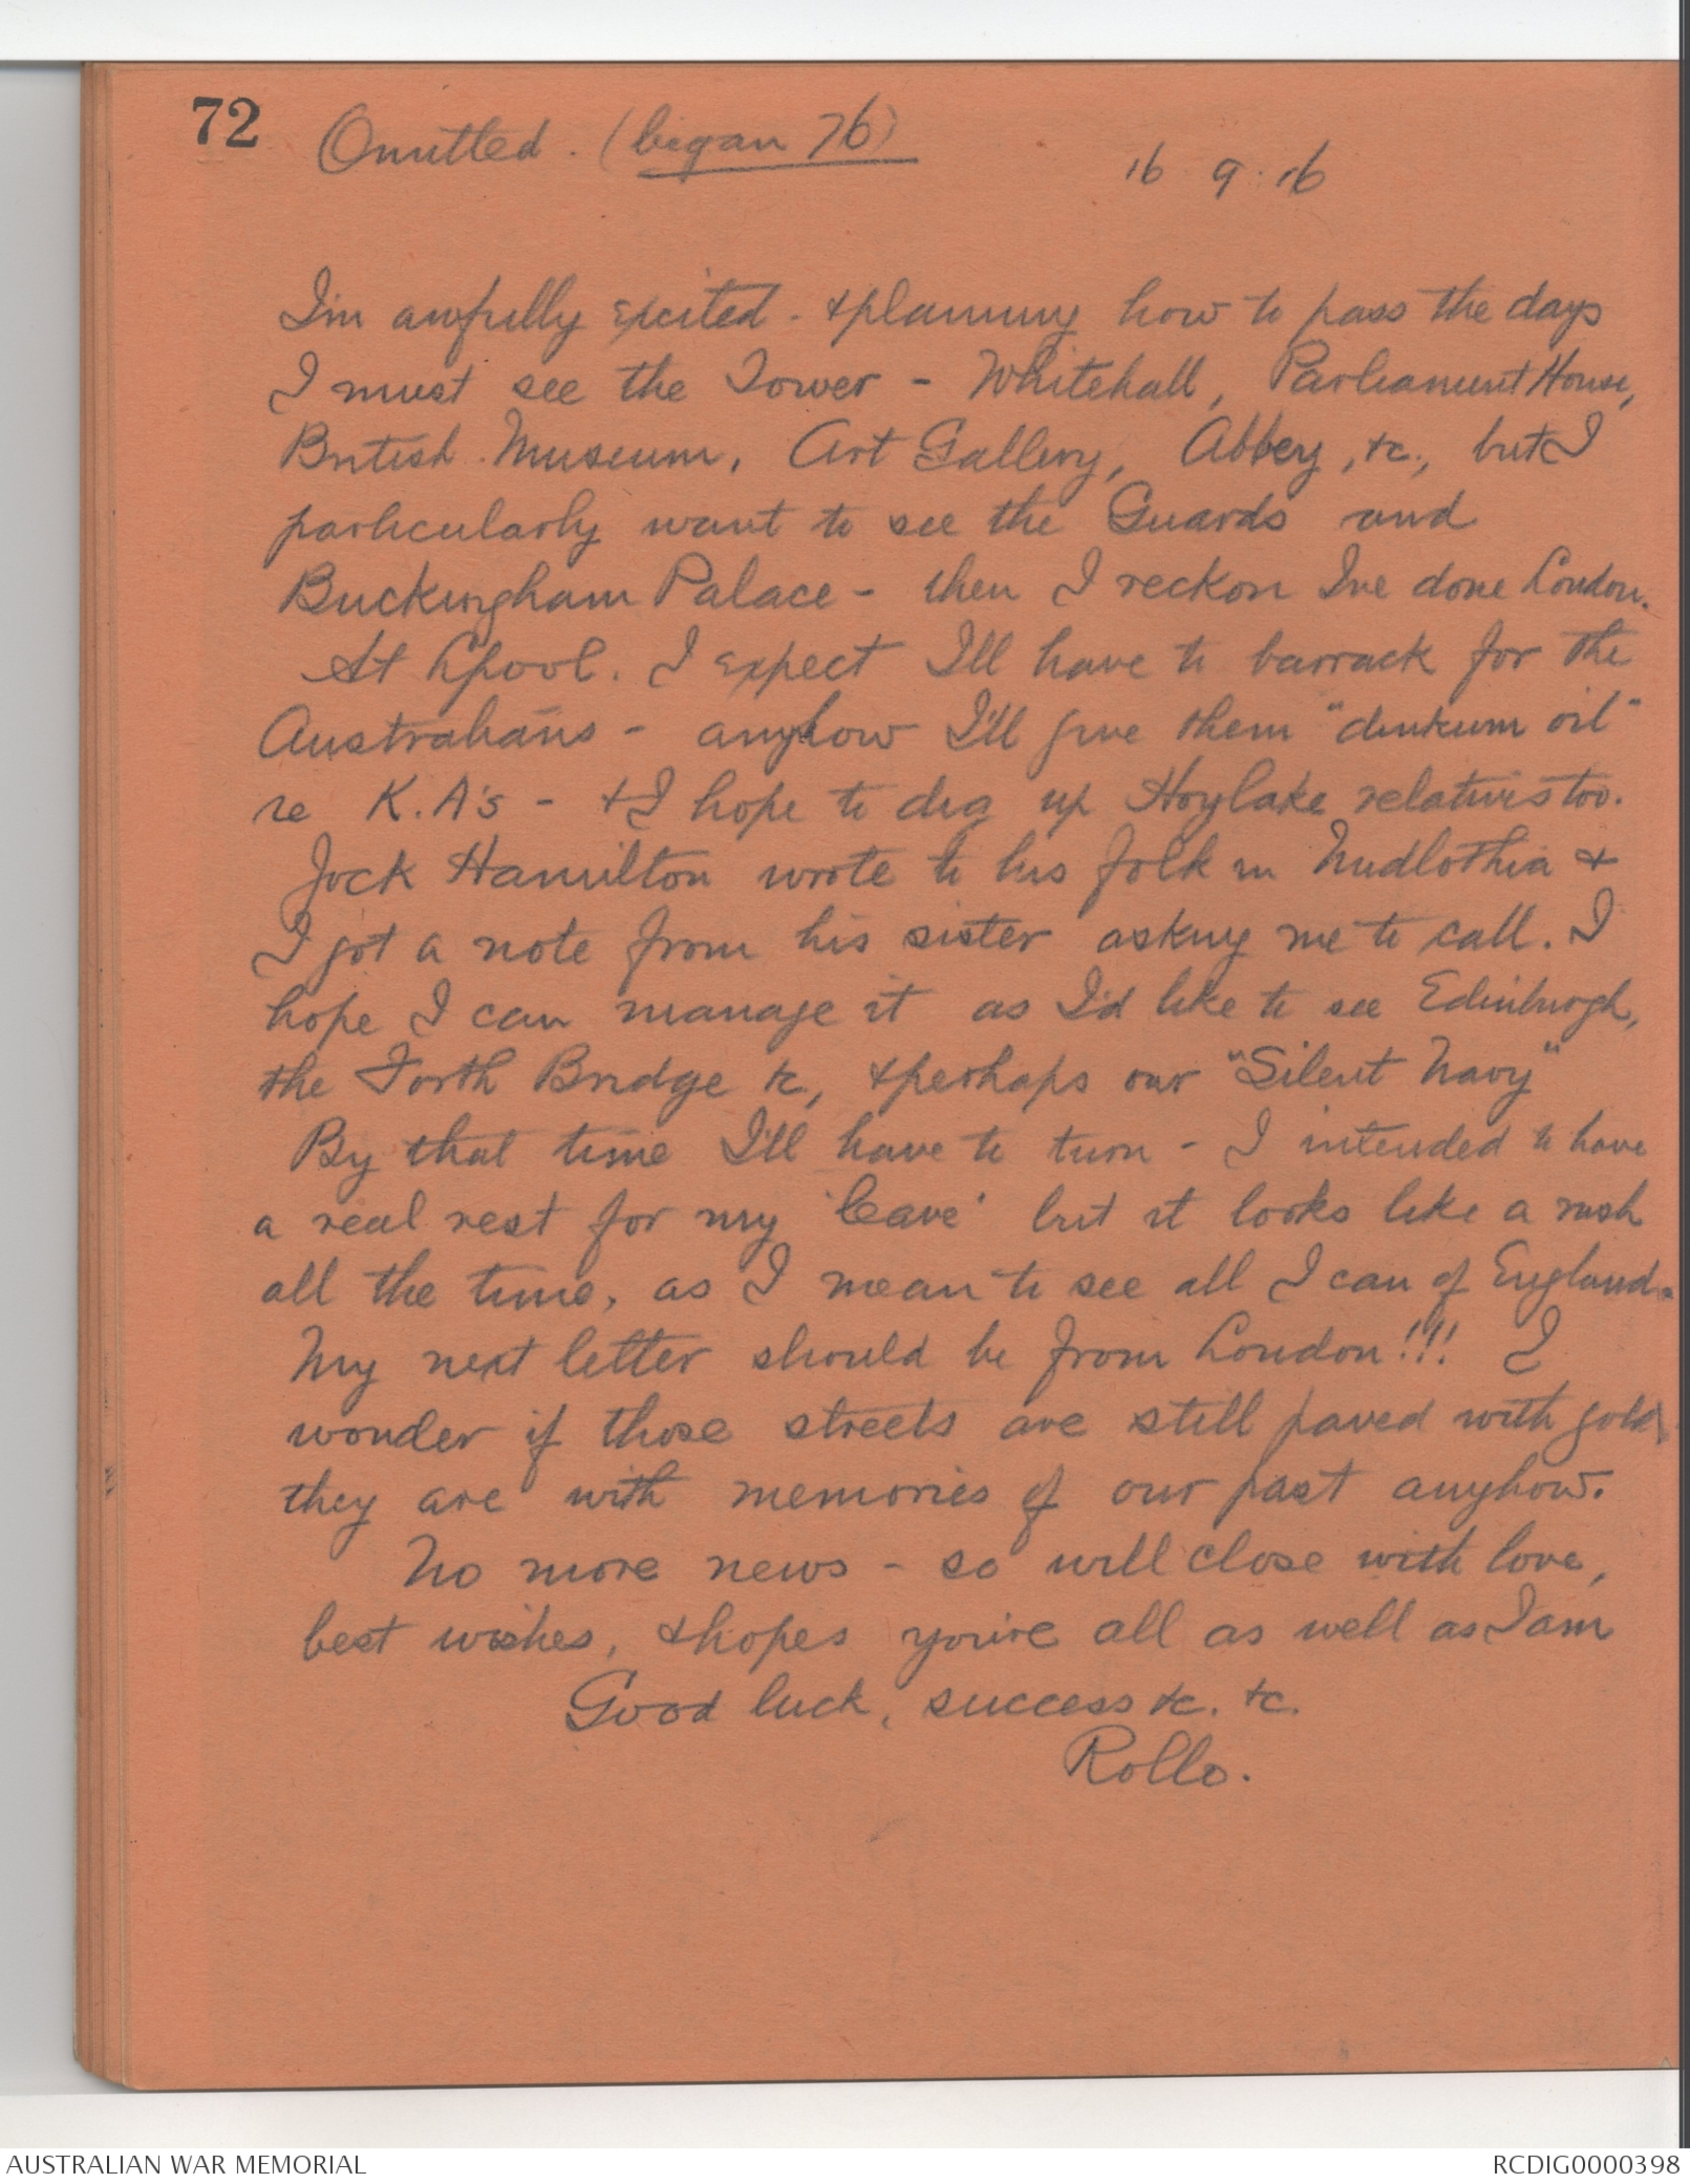 72 Omitted. (began 76)
16 9:16
I'm awfully excited - & planning how to pass the days
I must see the Tower - Whitehall, Parliament House,
British Museum, Art Gallery, Abbey, &c., but I
particularly want to see the Guards and
Buckingham Palace - then I reckon I've done London.
At L'pool. I expect I'll have to barrack for the
Australians - anyhow I'll give them "dinkum oil"
re K.A's - & I hope to dig up Hoylake relatives too.
Jock Hamilton wrote to his folk in Midlothia &
I got a note from his sister asking me to call. I
hope I can manage it as I'd like to see Edinburgh,
the Forth Bridge &c, & perhaps our "Silent Navy"
By that time I'll have to turn - I intended to have
a real rest for my 'leave' but it looks like a rush
all the time, as I mean to see all I can of England.
My next letter should be from London!!! I
wonder if those streets are still paved with gold,
they are with memories of our past anyhow.
No more news - so will close with love,
best wishes, & hopes you're all as well as I am
Good luck, success &c. &c.
Rollo.
AUSTRALIAN WAR MEMORIAL
RCDIG0000398